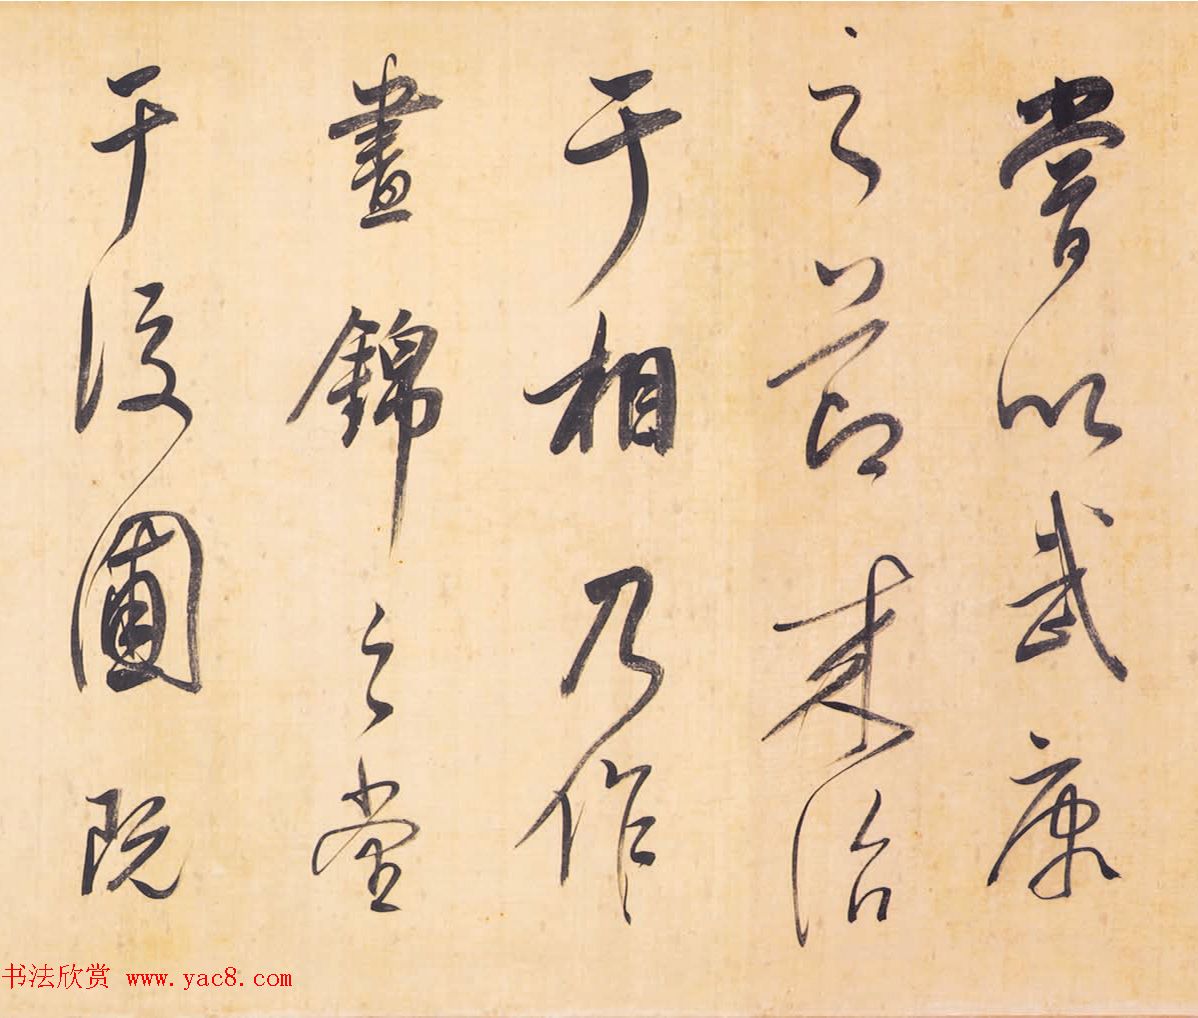 嘗以武康
之節來治
于相乃作
晝錦之堂
于後圃既
书法欣赏 www.yac8.com